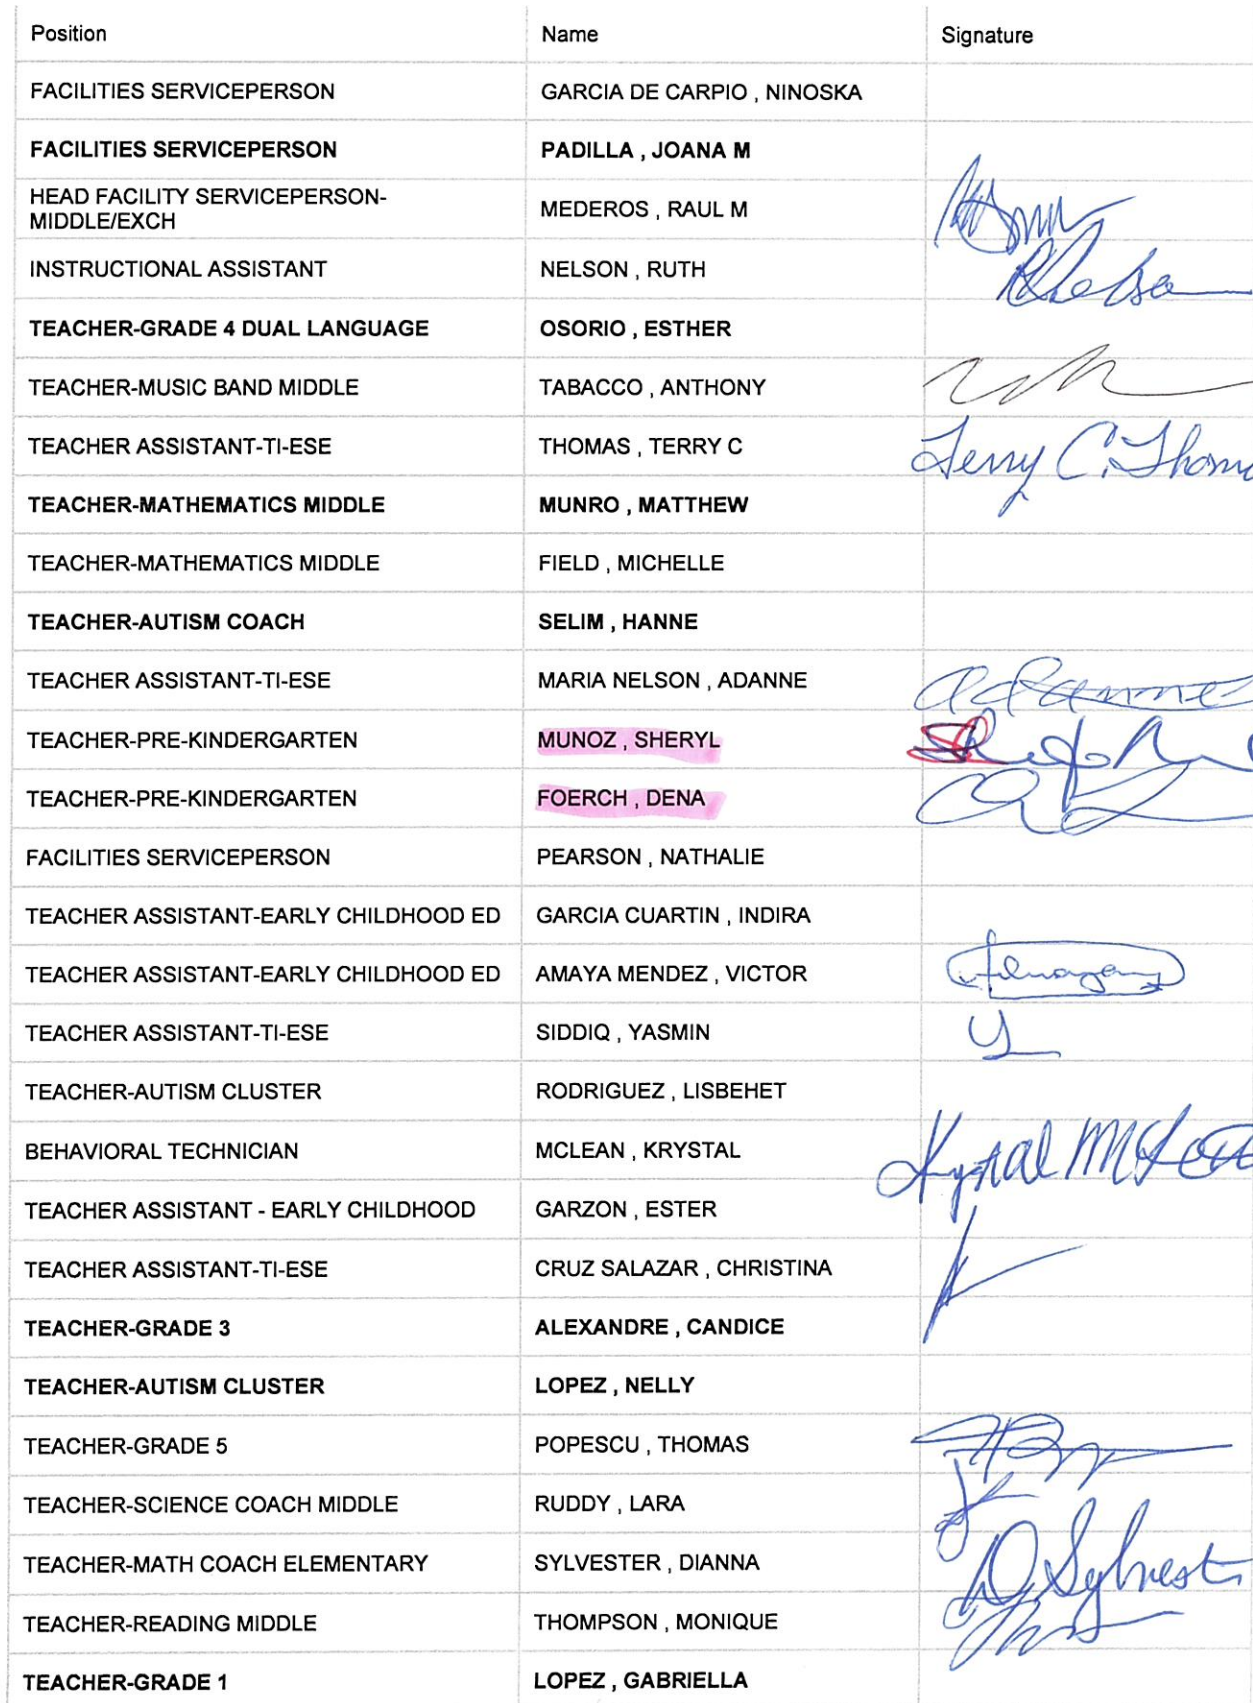 Position Name Signature
FACILITIES SERVICEPERSON GARCIA DE CARPIO , NINOSKA
FACILITIES SERVICEPERSON PADILLA , JOANA M
HEAD FACILITY SERVICEPERSON-
MIDDLE/EXCH MEDEROS , RAUL M
INSTRUCTIONAL ASSISTANT NELSON , RUTH
TEACHER-GRADE 4 DUAL LANGUAGE OSORIO , ESTHER
TEACHER-MUSIC BAND MIDDLE TABACCO , ANTHONY
TEACHER ASSISTANT-TI-ESE THOMAS , TERRY C Terry C. Thoma
TEACHER-MATHEMATICS MIDDLE MUNRO , MATTHEW
TEACHER-MATHEMATICS MIDDLE FIELD , MICHELLE
TEACHER-AUTISM COACH SELIM , HANNE
TEACHER ASSISTANT-TI-ESE MARIA NELSON , ADANNE adanne
TEACHER-PRE-KINDERGARTEN MUNOZ , SHERYL
TEACHER-PRE-KINDERGARTEN FOERCH , DENA
FACILITIES SERVICEPERSON PEARSON , NATHALIE
TEACHER ASSISTANT-EARLY CHILDHOOD ED GARCIA CUARTIN , INDIRA
TEACHER ASSISTANT-EARLY CHILDHOOD ED AMAYA MENDEZ , VICTOR
TEACHER ASSISTANT-TI-ESE SIDDIQ , YASMIN
TEACHER-AUTISM CLUSTER RODRIGUEZ , LISBEHET
BEHAVIORAL TECHNICIAN MCLEAN , KRYSTAL Krystal McLean
TEACHER ASSISTANT - EARLY CHILDHOOD GARZON , ESTER
TEACHER ASSISTANT-TI-ESE CRUZ SALAZAR , CHRISTINA
TEACHER-GRADE 3 ALEXANDRE , CANDICE
TEACHER-AUTISM CLUSTER LOPEZ , NELLY
TEACHER-GRADE 5 POPESCU , THOMAS
TEACHER-SCIENCE COACH MIDDLE RUDDY , LARA
TEACHER-MATH COACH ELEMENTARY SYLVESTER , DIANNA D Sylvest
TEACHER-READING MIDDLE THOMPSON , MONIQUE
TEACHER-GRADE 1 LOPEZ , GABRIELLA